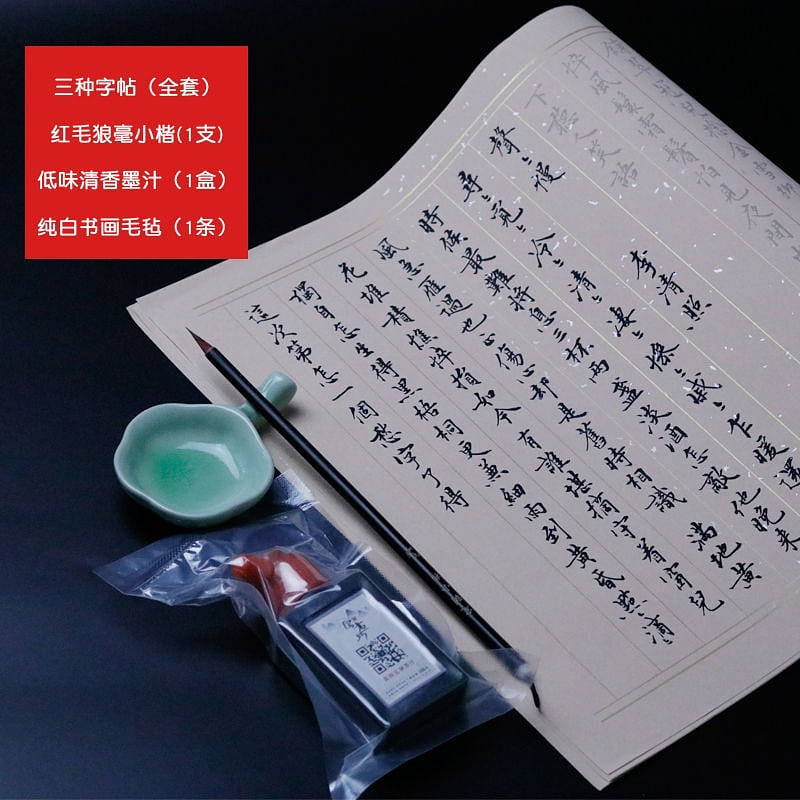 三种字帖（全套）
红毛狼毫小楷(1支)
低味清香墨汁（1盒）
纯白书画毛毡（1条）
金雪柳
悴風鬟霜鬢怕見夜間
下聽人笑語
聲々慢 李清照
尋々覓々冷々清々凄々慘々戚々乍暖還
時候最難將息三杯兩盞淡酒怎敵他晚來
風急雁過也正傷心却是舊時相識 滿地黃
花堆積憔悴損如今有誰堪摘守着窗兒
獨自怎生得黑梧桐更兼細雨到黃昏點滴
這次第怎一個愁字了得